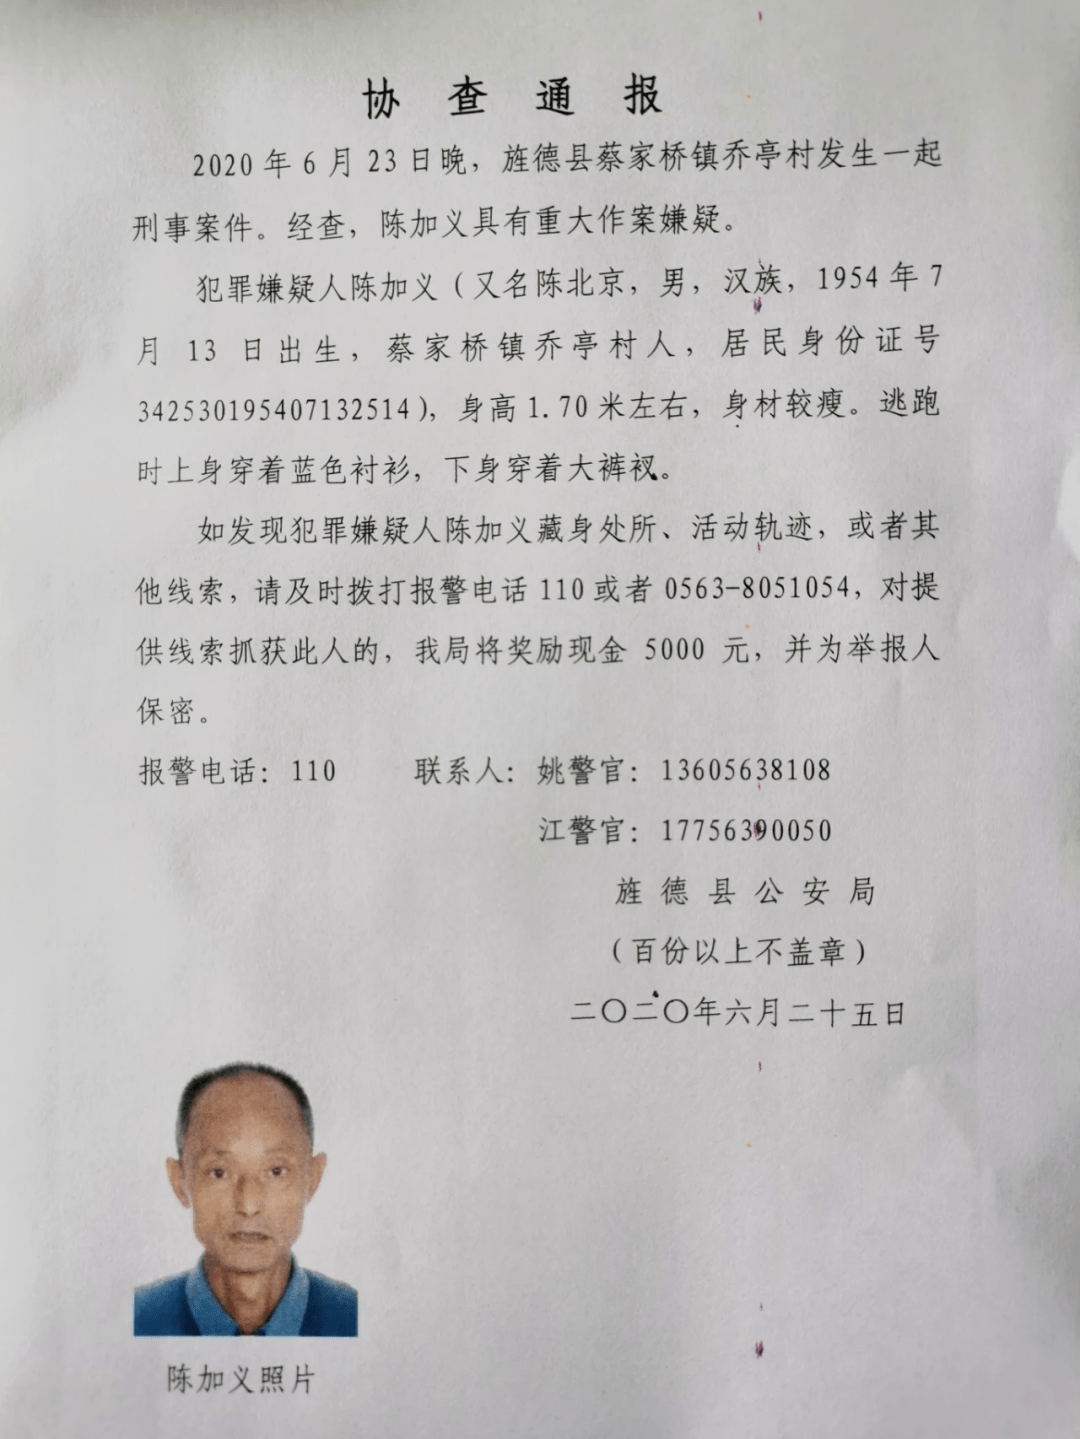 协查通报
2020年6月23日晚，旌德县蔡家桥镇乔亭村发生一起
刑事案件。经查，陈加义具有重大作案嫌疑。
犯罪嫌疑人陈加义（又名陈北京，男，汉族，1954年7
月13日出生，蔡家桥镇乔亭村人，居民身份证号
342530195407132514），身高1.70米左右，身材较瘦。逃跑
时上身穿着蓝色衬衫，下身穿着大裤衩。
如发现犯罪嫌疑人陈加义藏身处所、活动轨迹，或者其
他线索，请及时拨打报警电话110或者0563-8051054，对提
供线索抓获此人的，我局将奖励现金5000元，并为举报人
保密。
报警电话：110 联系人：姚警官：13605638108
江警官：17756390050
旌德县公安局
（百份以上不盖章）
二〇二〇年六月二十五日
陈加义照片